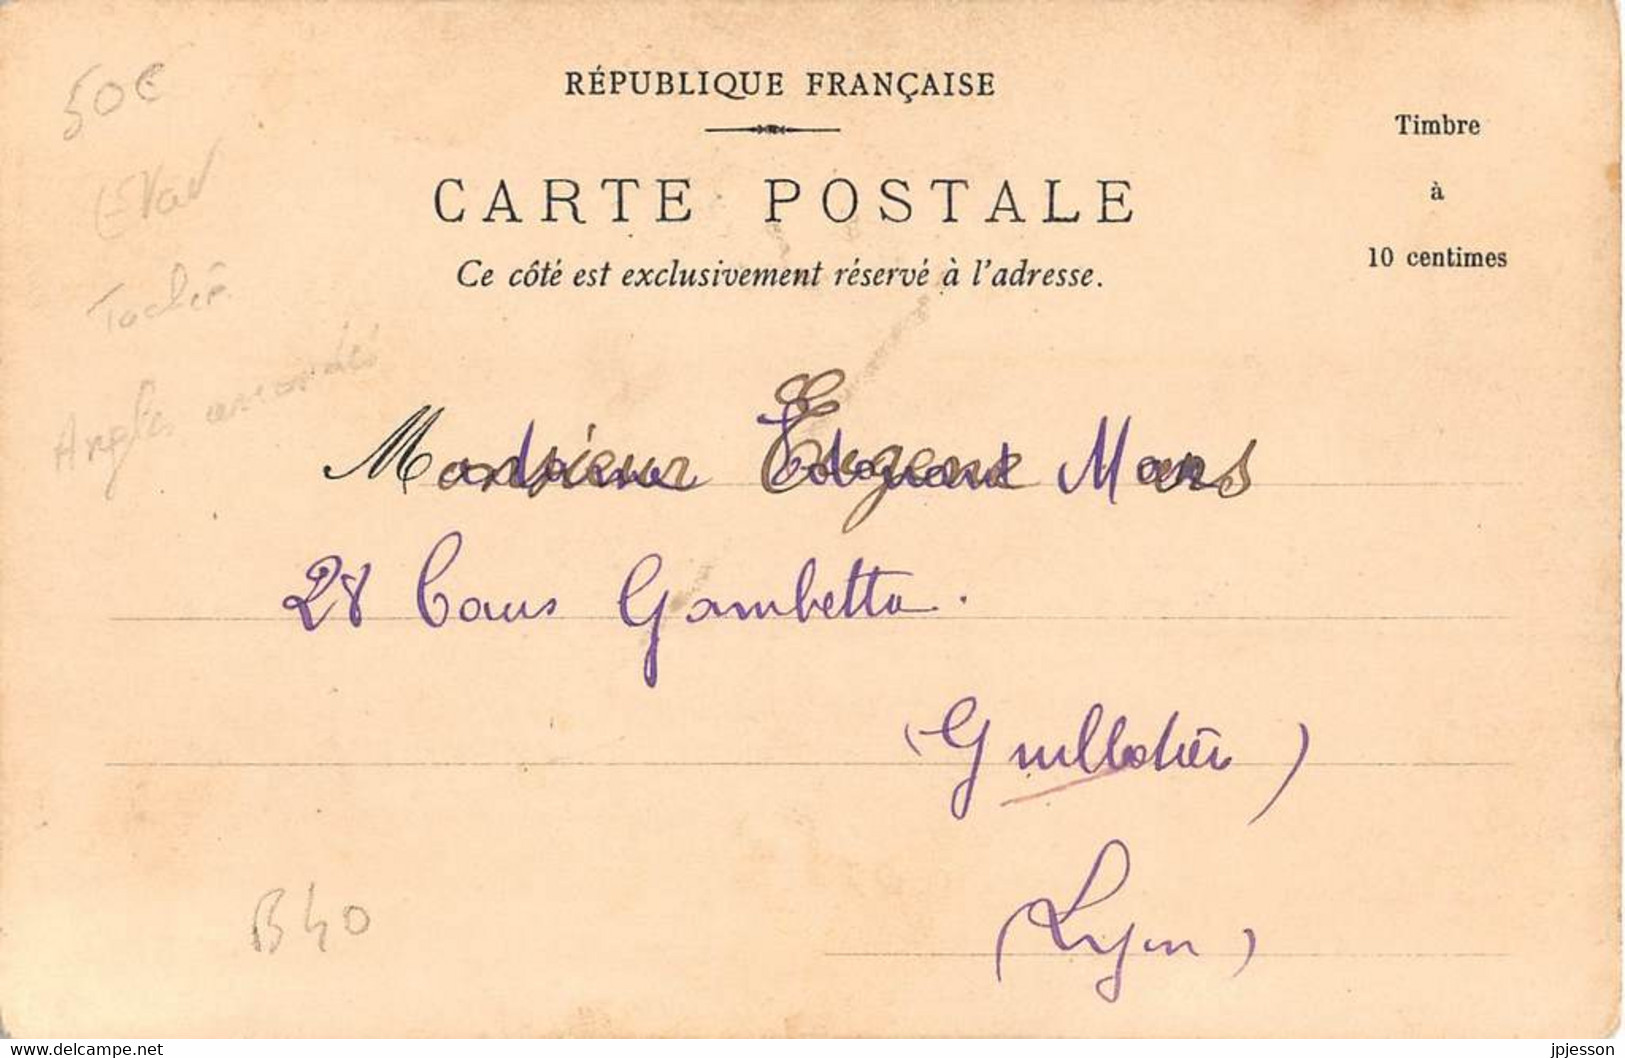 50€
RÉPUBLIQUE FRANÇAISE
Timbre
à
10 centimes
CARTE POSTALE
Ce côté est exclusivement réservé à l'adresse.
Taché
Angles arrondis
Monsieur Eugene Mans
28 Cours Gambetta.
(Guillotière)
(Lyon)
B40
www.delcampe.net
jpjesson